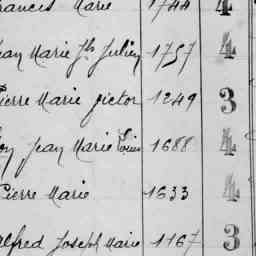 rancis Marie 1744 4
ean Marie Jh Julien 1757 4
ierre Marie Victor 1249 3
oy Jean Marie Louis 1688 4
Pierre Marie 1633 4
Alfred Joseph Marie 1167 3